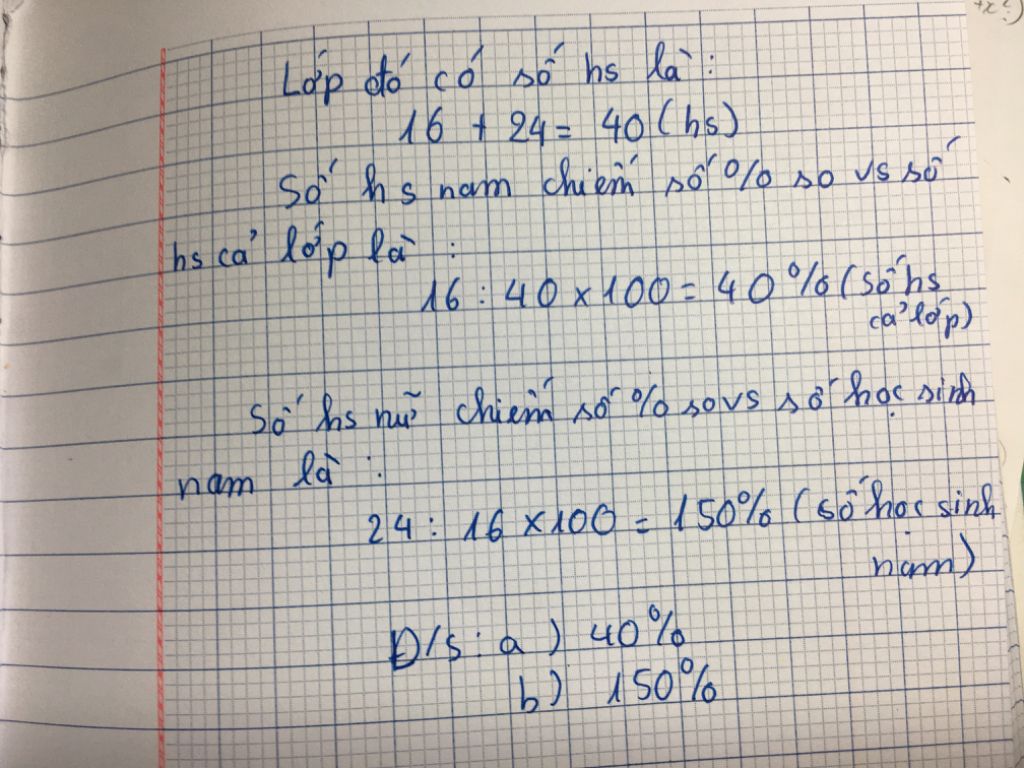 Lớp đó có số hs là:
16 + 24 = 40 (hs)
Số hs nam chiếm số % so vs số
hs cả lớp là :
16 : 40 x 100 = 40 % (số hs
cả lớp)
Số hs nữ chiếm số % so vs số học sinh
nam là :
24 : 16 x 100 = 150% (số học sinh
nam)
Đ/s: a) 40%
b) 150%